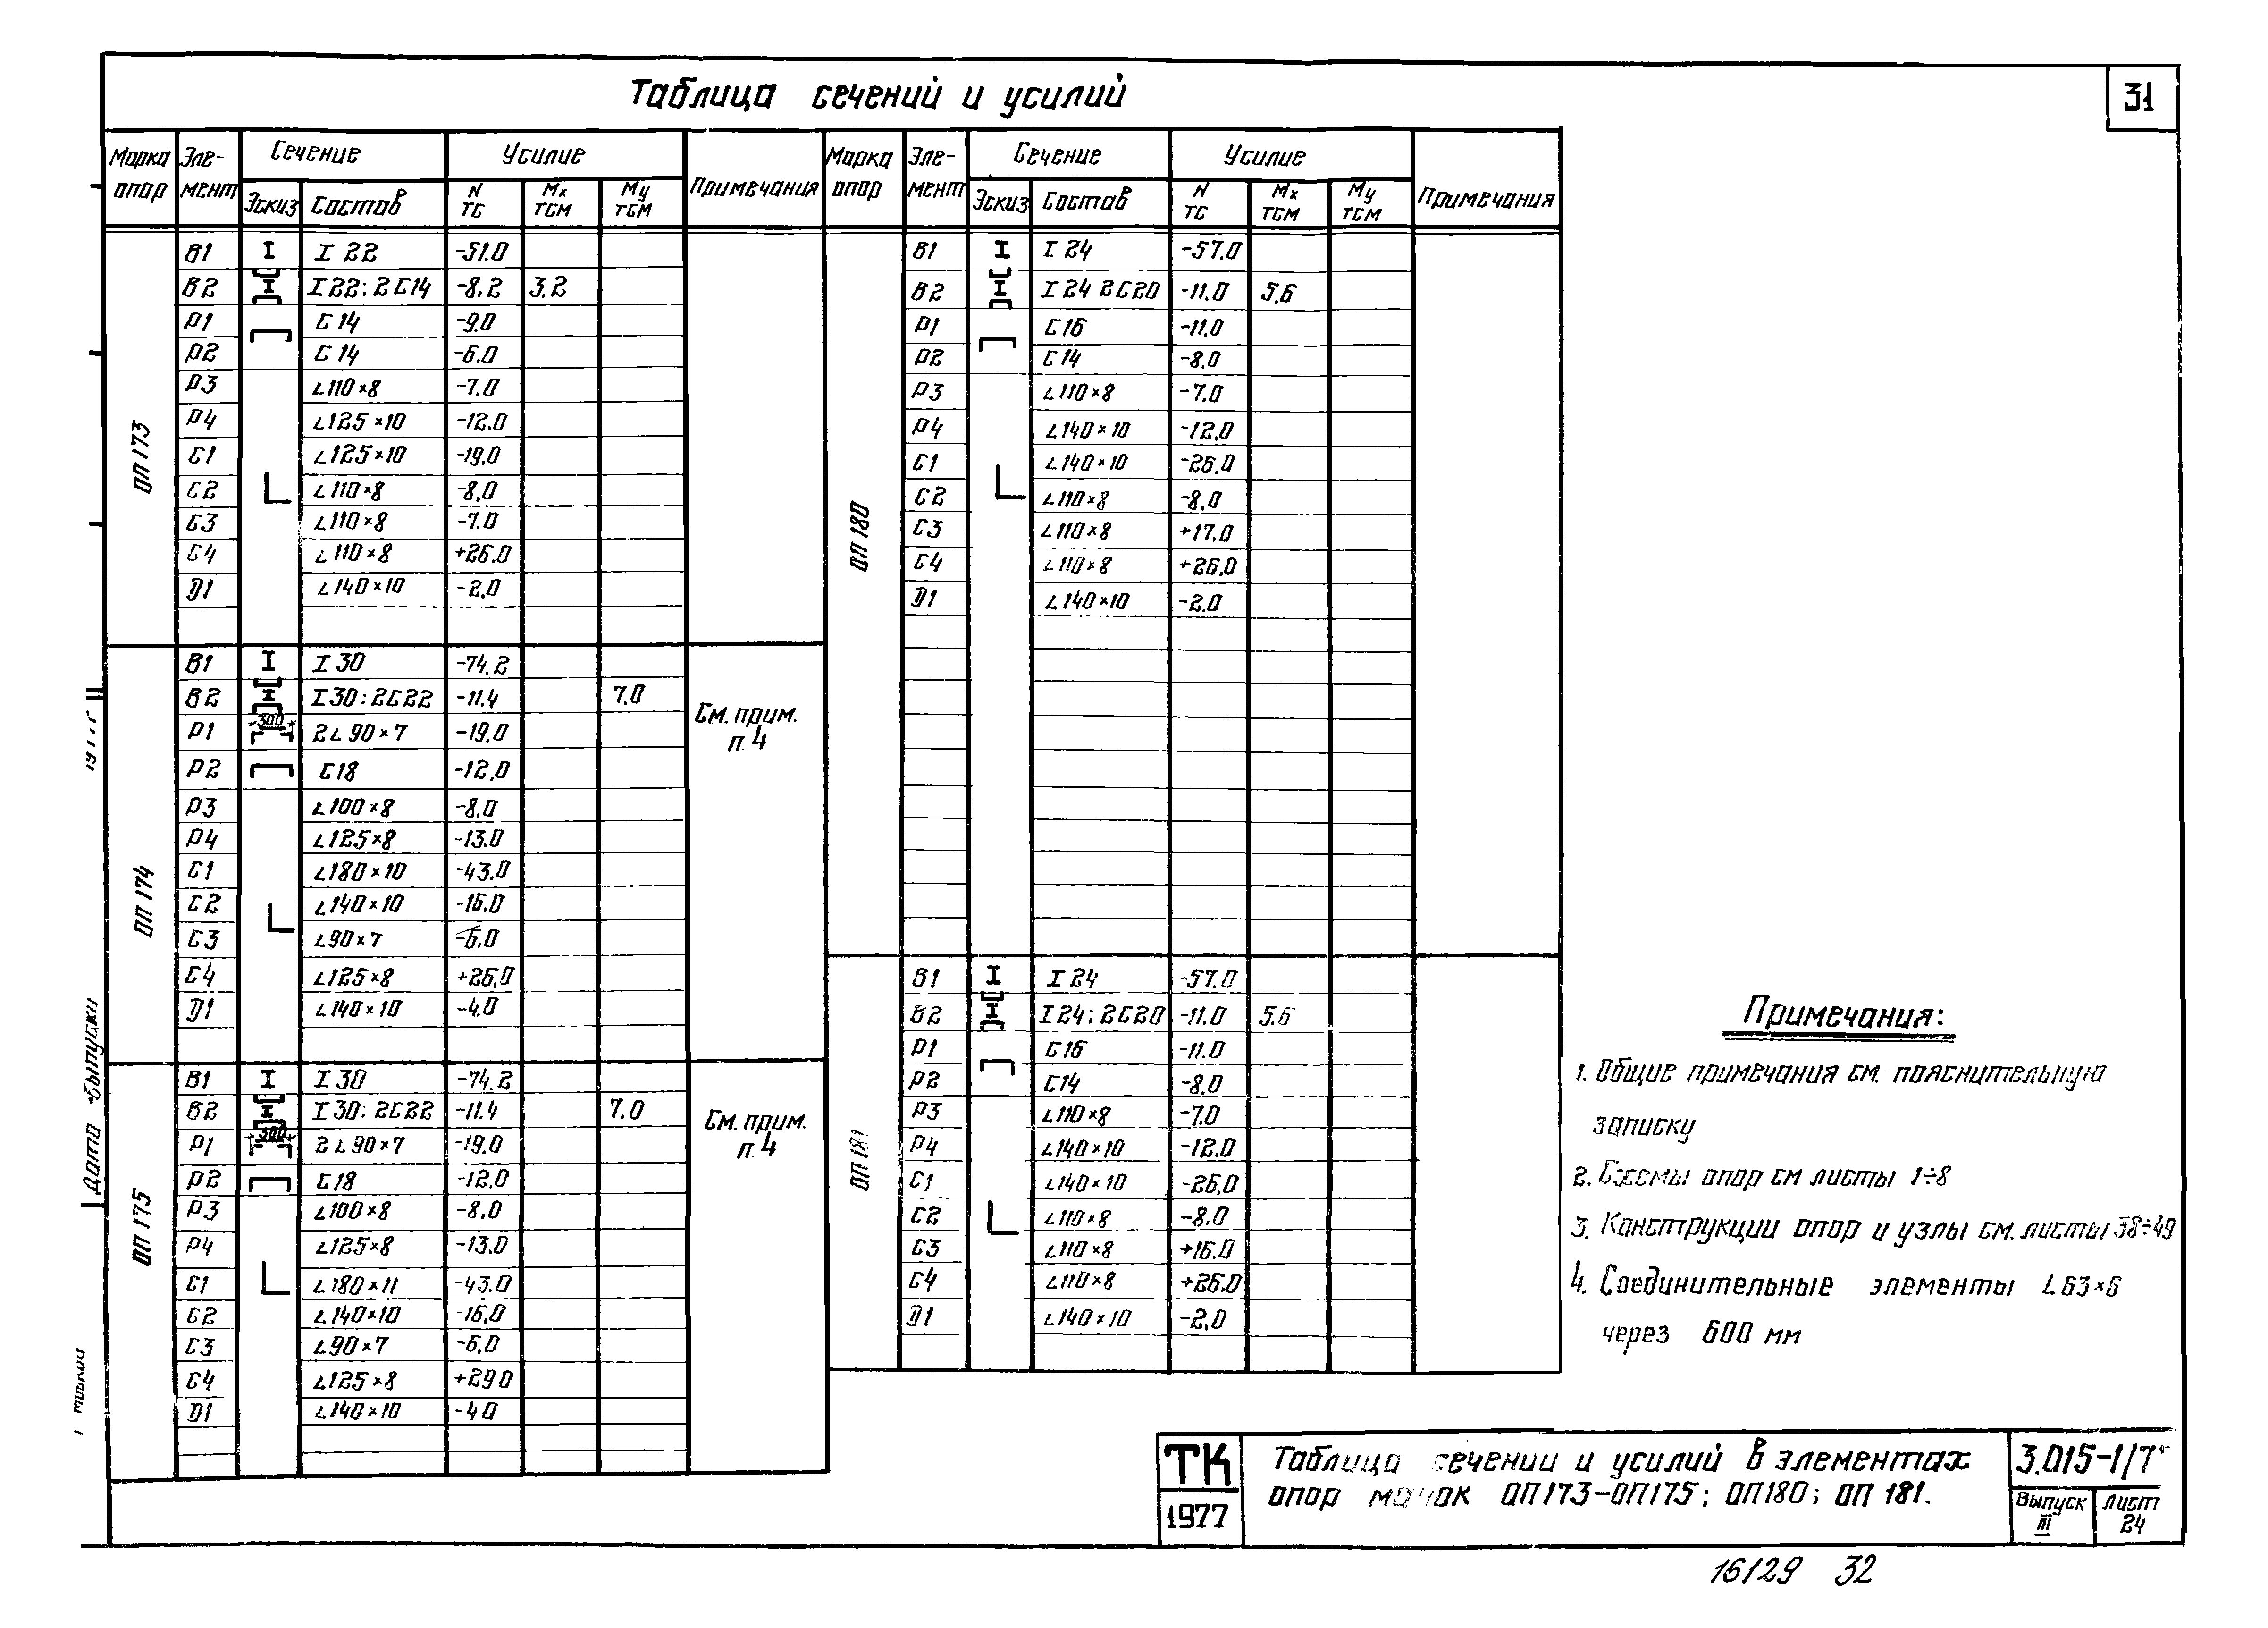 31
Таблица сечений и усилий
Марка опор Элемент Сечение Усилие Примечания
Эскиз Состав N тс Mx тсм My тсм
ОП 173
В1 I 22 -51.0
В2 I 22; 2 С 14 -8.2 3.2
Р1 С 14 -9.0
Р2 С 14 -6.0
Р3 L 110×8 -7.0
Р4 L 125×10 -12.0
С1 L 125×10 -19.0
С2 L 110×8 -8.0
С3 L 110×8 -7.0
С4 L 110×8 +26.0
Д1 L 140×10 -2.0
ОП 174
В1 I 30 -74.2
В2 I 30; 2С22 -11.4 7.0 См. прим. п. 4
Р1 300 2 L 90×7 -19.0
Р2 С18 -12.0
Р3 L 100×8 -8.0
Р4 L 125×8 -13.0
С1 L 180×10 -43.0
С2 L 140×10 -16.0
С3 L 90×7 -6.0
С4 L 125×8 +26.0
Д1 L 140×10 -4.0
ОП 175
В1 I 30 -74.2
В2 I 30; 2С22 -11.4 7.0 См. прим. п. 4
Р1 300 2 L 90×7 -19.0
Р2 С18 -12.0
Р3 L 100×8 -8.0
Р4 L 125×8 -13.0
С1 L 180×11 -43.0
С2 L 140×10 -16.0
С3 L 90×7 -6.0
С4 L 125×8 +29 0
Д1 L 140×10 -4 0
Марка опор Элемент Сечение Усилие Примечания
Эскиз Состав N тс Mx тсм My тсм
ОП 180
В1 I 24 -57.0
В2 I 24 2С20 -11.0 5.6
Р1 С16 -11.0
Р2 С14 -8.0
Р3 L 110×8 -7.0
Р4 L 140×10 -12.0
С1 L 140×10 -26.0
С2 L 110×8 -8.0
С3 L 110×8 +17.0
С4 L 110×8 +26.0
Д1 L 140×10 -2.0
ОП 181
В1 I 24 -57.0
В2 I 24; 2С20 -11.0 5.6
Р1 С16 -11.0
Р2 С14 -8.0
Р3 L 110×8 -7.0
Р4 L 140×10 -12.0
С1 L 140×10 -26.0
С2 L 110×8 -8.0
С3 L 110×8 +16.0
С4 L 110×8 +26.0
Д1 L 140×10 -2.0
Примечания:
1. Общие примечания см. пояснительную
записку
2. Схемы опор см листы 1÷8
3. Конструкции опор и узлы см. листы 38÷49
4. Соединительные элементы L 63×6
через 600 мм
Дата выпуска
ТК
1977
Таблица сечений и усилий в элементах
опор марок ОП173–ОП175; ОП180; ОП 181.
3.015-1/77
Выпуск III
Лист 24
16129 32